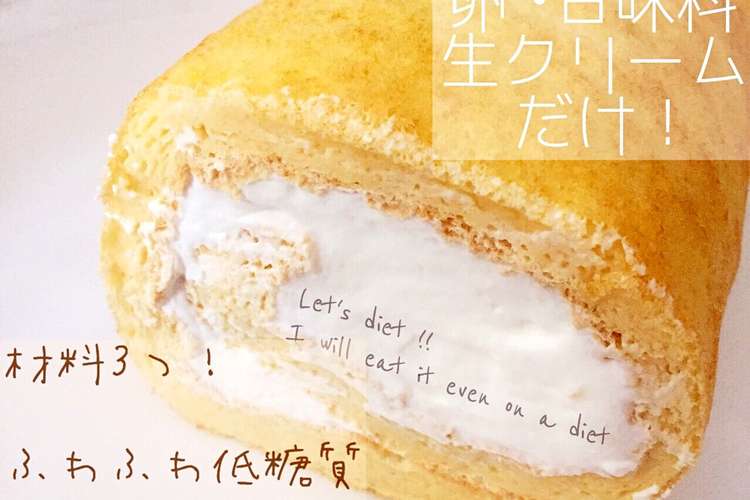 卵・甘味料
生クリーム
だけ！
Let's diet !!
I will eat it even on a diet
材料3つ！
ふわふわ低糖質